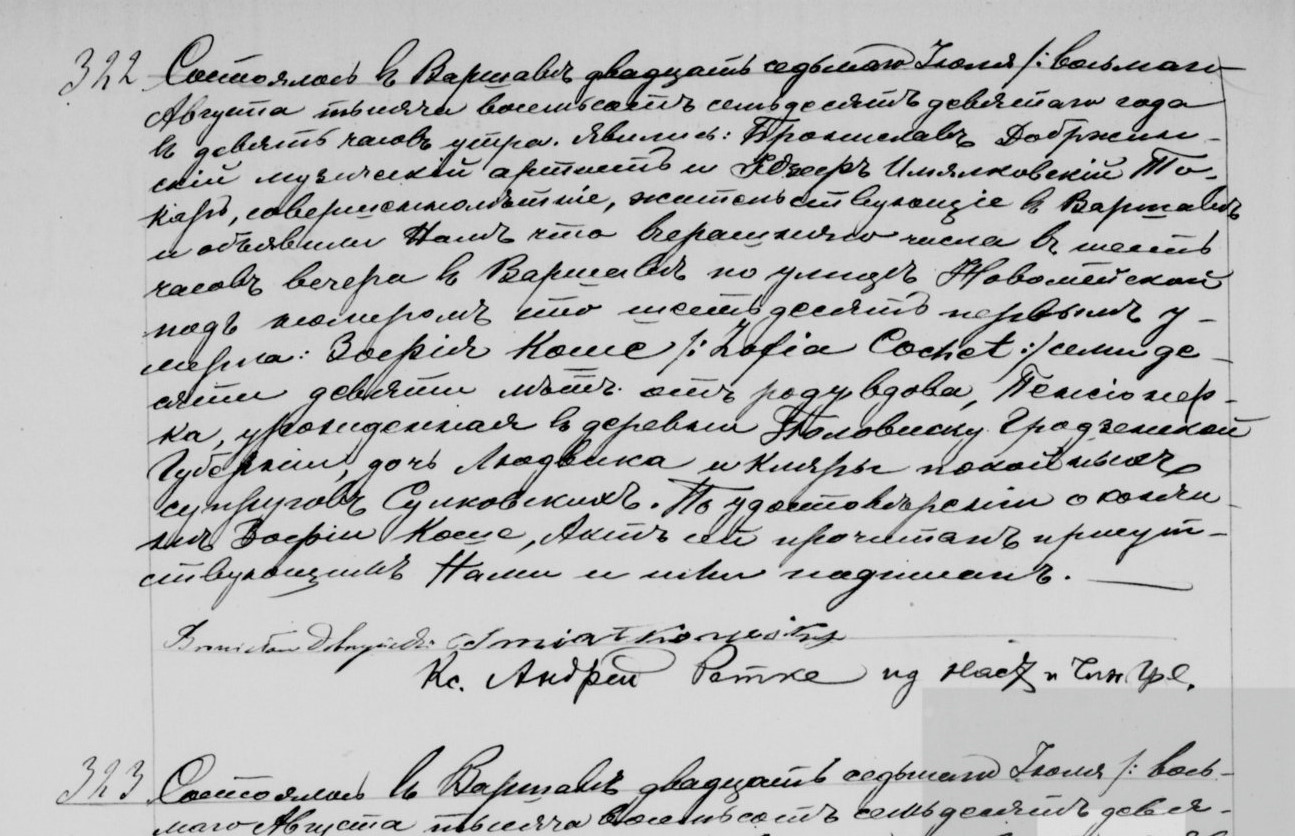 322 Состоялось въ Варшавѣ двадцать седьмаго Іюля /: восьмаго
Августа тысяча восемьсотъ семьдесятъ девятаго года
въ девять часовъ утра. Явились: Брониславъ Добржин-
скій музыческій артистъ и Имялковскій То-
карь, совершеннолѣтніе, жительствующіе въ Варшавѣ
и объявили Намъ что вчерашняго числа въ шесть
часовъ вечера въ Варшавѣ по улицѣ Новомейской
подъ номеромъ сто шестьдесятъ первымъ у-
мерла: Зоефія Коше /: Zofia Cochet :/ семиде-
сяти девяти лѣтъ отъ роду, вдова, Пенсіонер-
ка, урожденная въ деревни Гродзенской
Губерніи, дочь Людвика и Кляры покойныхъ
супруговъ Сулковскихъ. По удостовѣреніи о кончи-
нѣ Зоефіи Коше, Актъ сей прочитанъ присут-
ствующимъ Нами и ими подписанъ.
Bronisław Dobrzyński
Кс. Андрей Ретке
323 Состоялось въ Варшавѣ двадцать седьмаго Іюля /: вось-
маго Августа тысяча восемьсотъ семьдесятъ девя-